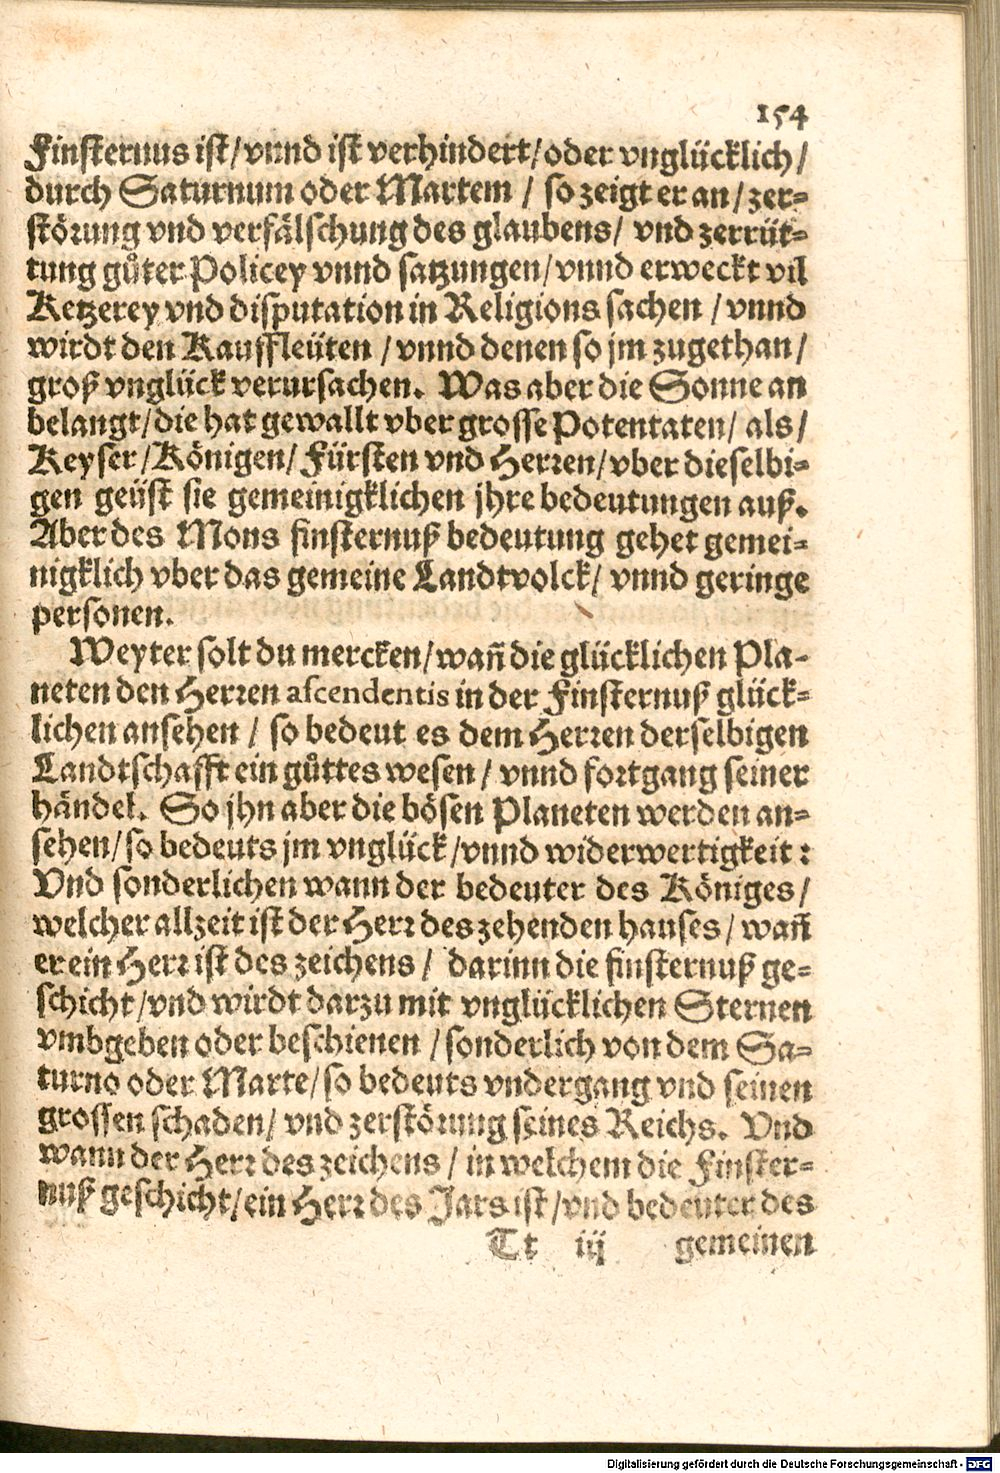 154
Finsternus ist/ vnnd ist verhindert/ oder vnglücklich/
durch Saturnum oder Martem / so zeigt er an/ zer-
störung vnd verfälschung des glaubens/ vnd zerrüt-
tung gůter Policey vnnd satzungen/ vnnd erweckt vil
Ketzerey vnd disputation in Religions sachen / vnnd
wirdt den Kauffleüten / vnnd denen so jm zugethan/
groß vnglück verursachen. Was aber die Sonne an
belangt/ die hat gewallt vber grosse Potentaten/ als/
Keyser/ Königen/ Fürsten vnd Herren/ vber dieselbi-
gen geüst sie gemeinigklichen jhre bedeutungen auß.
Aber des Mons finsternuß bedeutung gehet gemei-
nigklich vber das gemeine Landtvolck/ vnnd geringe
personen.
Weyter solt du mercken/ wañ die glücklichen Pla-
neten den Herren ascendentis in der Finsternuß glück-
lichen ansehen / so bedeut es dem Herren derselbigen
Landtschafft ein gůttes wesen / vnnd fortgang seiner
händel. So jhn aber die bösen Planeten werden an-
sehen/ so bedeuts jm vnglück/ vnnd widerwertigkeit:
Vnd sonderlichen wann der bedeuter des Königes/
welcher allzeit ist der Herr des zehenden hauses/ wañ
er ein Herr ist des zeichens / darinn die finsternuß ge-
schicht/ vnd wirdt darzu mit vnglücklichen Sternen
vmbgeben oder beschienen / sonderlich von dem Sa-
turno oder Marte/ so bedeuts vndergang vnd seinen
grossen schaden/ vnd zerstörung seines Reichs. Vnd
wann der Herr des zeichens / in welchem die Finster-
nuß geschicht/ ein Herr des Jars ist/ vnd bedeuter des
Tt iij gemeinen
Digitalisierung gefördert durch die Deutsche Forschungsgemeinschaft - DFG